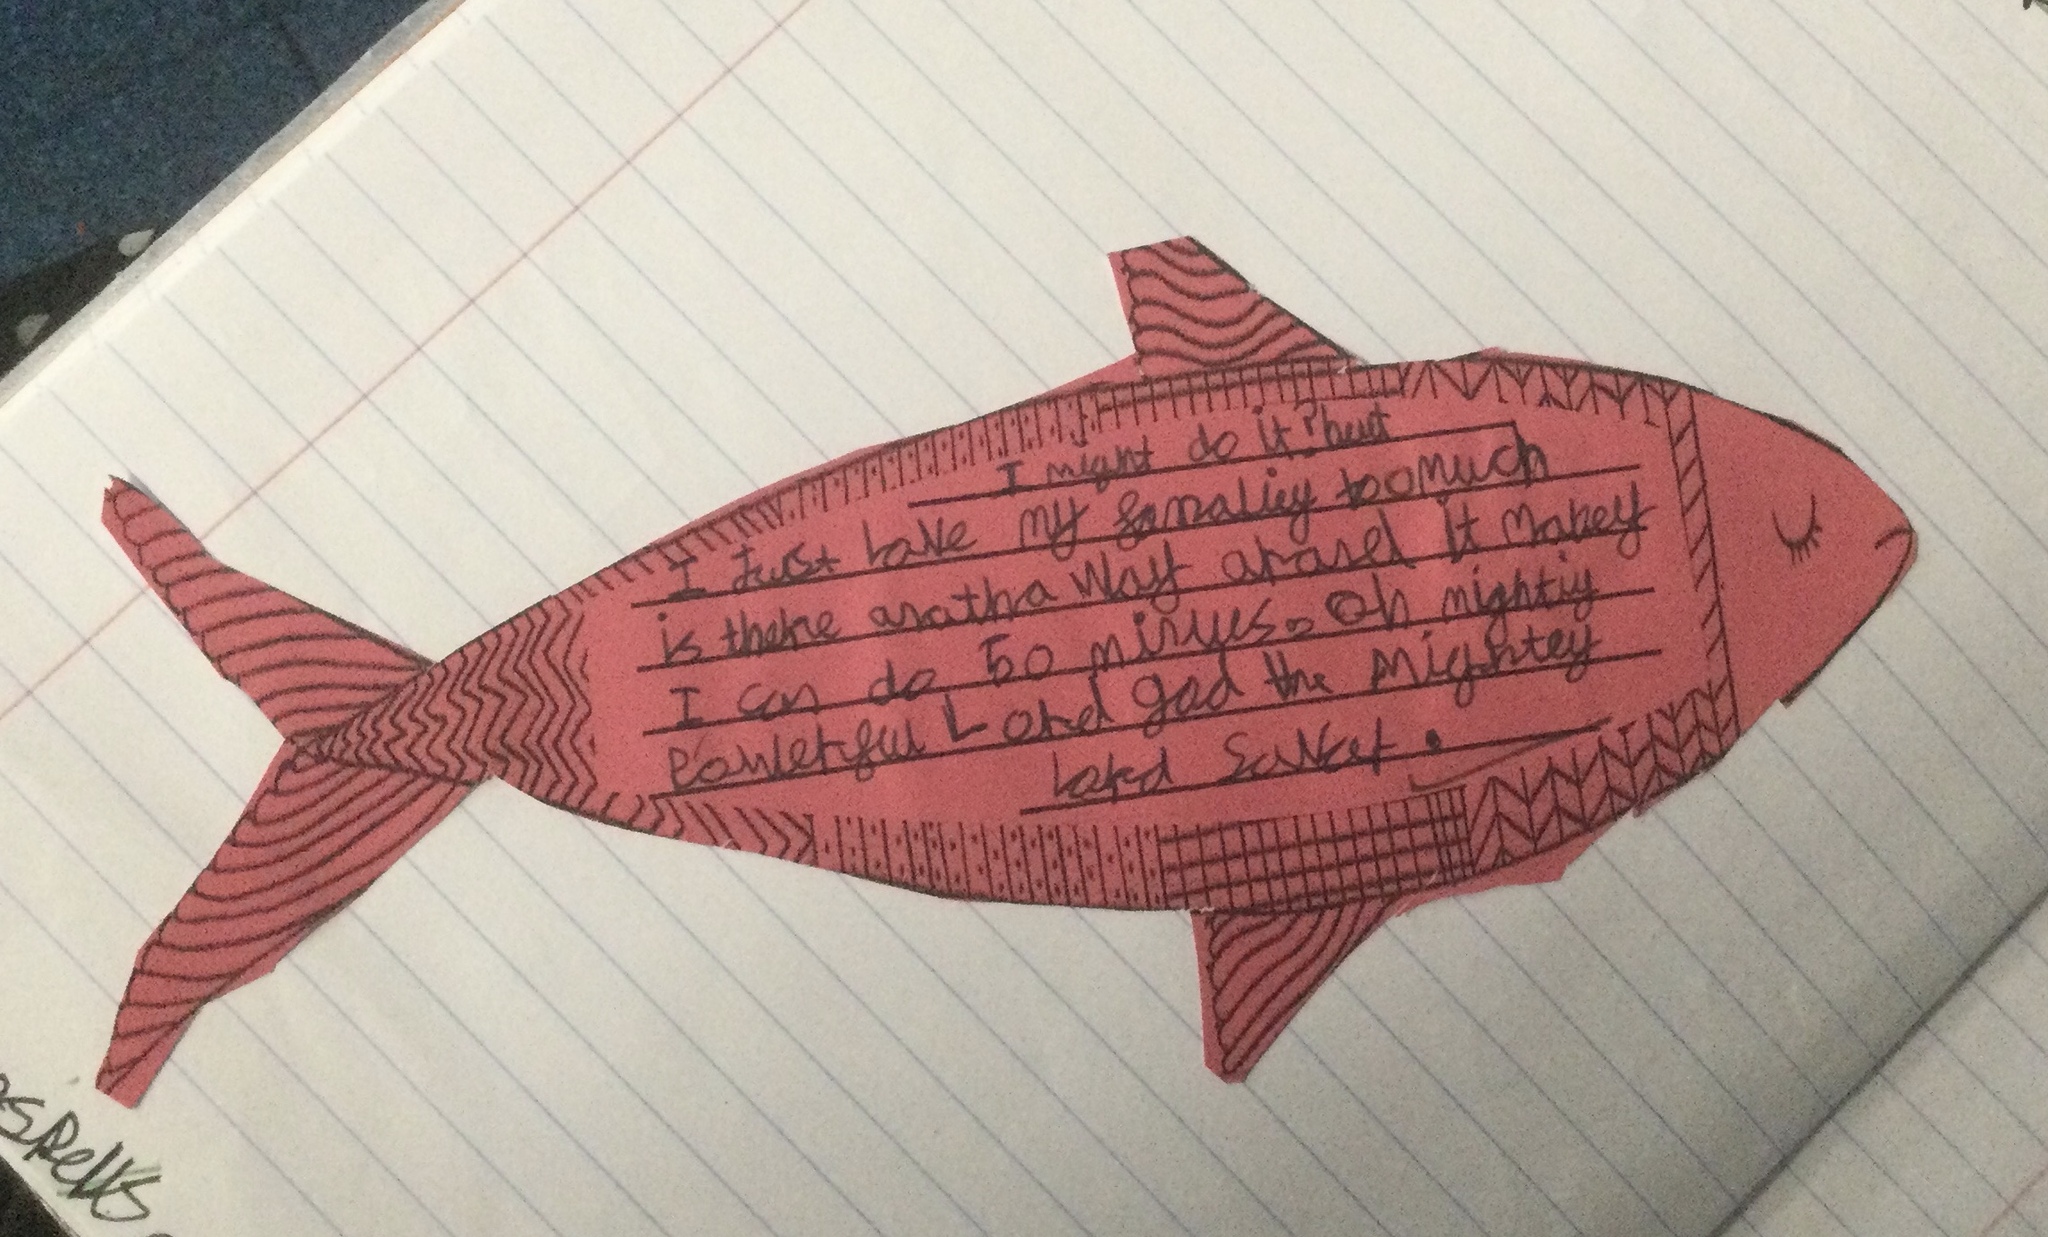 I might do it? but
I Just Love my famaliey too Much
is there anatha Way around it Mabey
I can do 50 minues. Oh mightiy
Powlerful Lord god the Mightey
Lord
spells